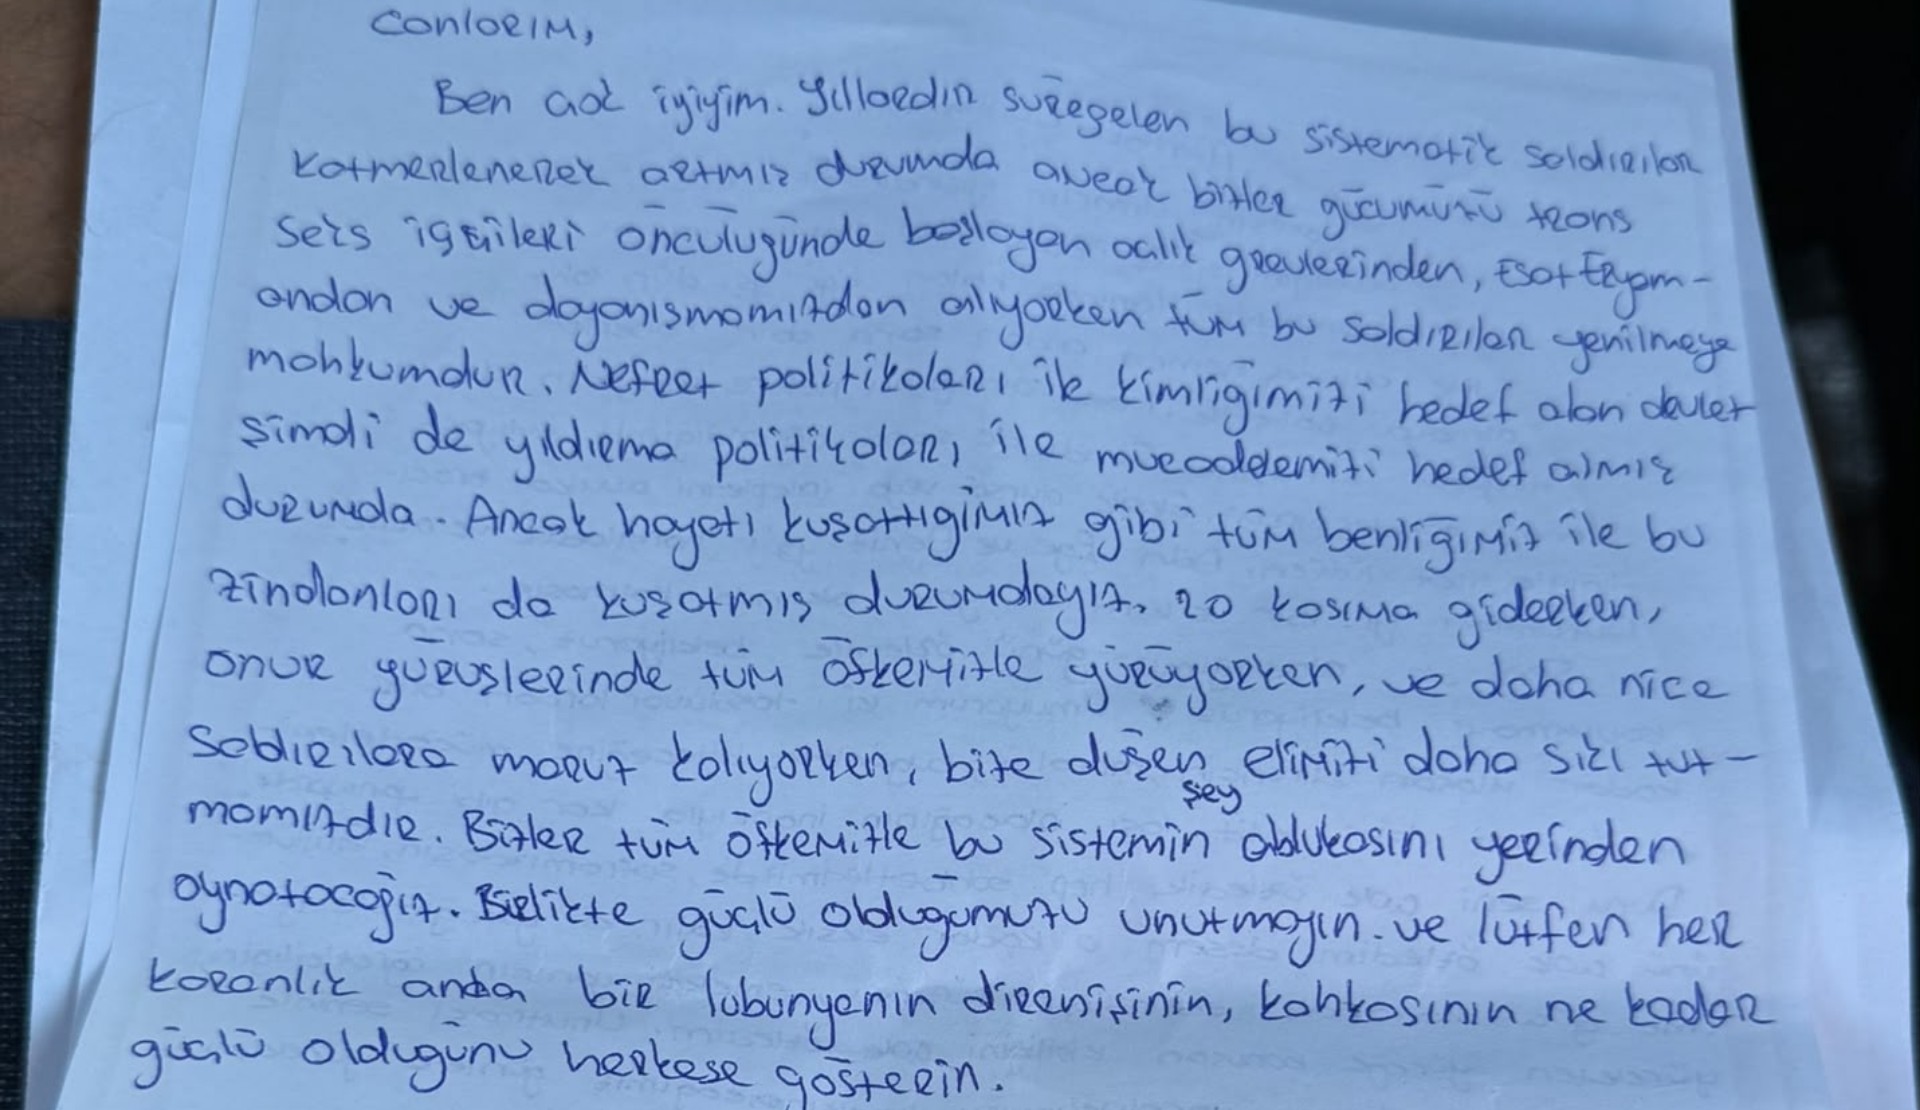 Canlarım,
Ben çok iyiyim. Yıllardır süregelen bu sistematik saldırılar
katmerlenerek artmış durumda ancak bizler gücümüzü trans
seks işçileri önculuğünde başlayan açlık grevlerinden, Esat Eryam-
andan ve dayanışmamızdan alıyorken tüm bu saldırılar yenilmeye
mahkumdur. Nefret politikaları ile kimliğimizi hedef alan devlet
şimdi de yıldırma politikaları ile mücaddemizi hedef almış
durumda. Ancak hayatı kuşattığımız gibi tüm benliğimiz ile bu
zindanları da kuşatmış durumdayız. 20 kasıma giderken,
onur yürüyüşlerinde tüm öfkemizle yürüyorken, ve daha nice
saldırılara maruz kalıyorken, bize düşen şey elimizi daha sıkı tut-
mamızdır. Bizler tüm öfkemizle bu sistemin ablukasını yerinden
oynatacağız. Birlikte güçlü olduğumuzu unutmayın. ve lütfen her
karanlık anda bir lubunyanın direnişinin, kahkasının ne kadar
güçlü olduğunu herkese gösterin.